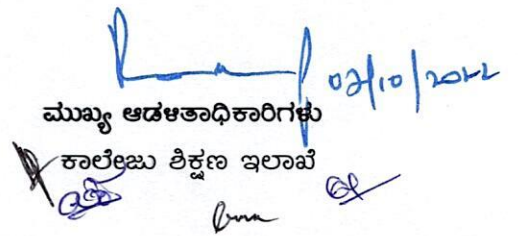 07/10/2022
ಮುಖ್ಯ ಆಡಳಿತಾಧಿಕಾರಿಗಳು
ಕಾಲೇಜು ಶಿಕ್ಷಣ ಇಲಾಖೆ